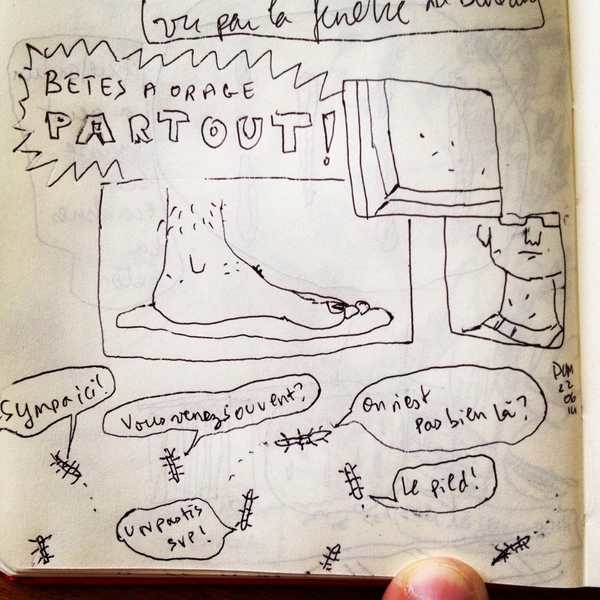 vu par la fenêtre
BETES A ORAGE
PARTOUT!
Sympa ici!
Vous venez souvent?
on n'est
pas bien là?
Le pied!
un pastis
svp!
DIM
22
06
14